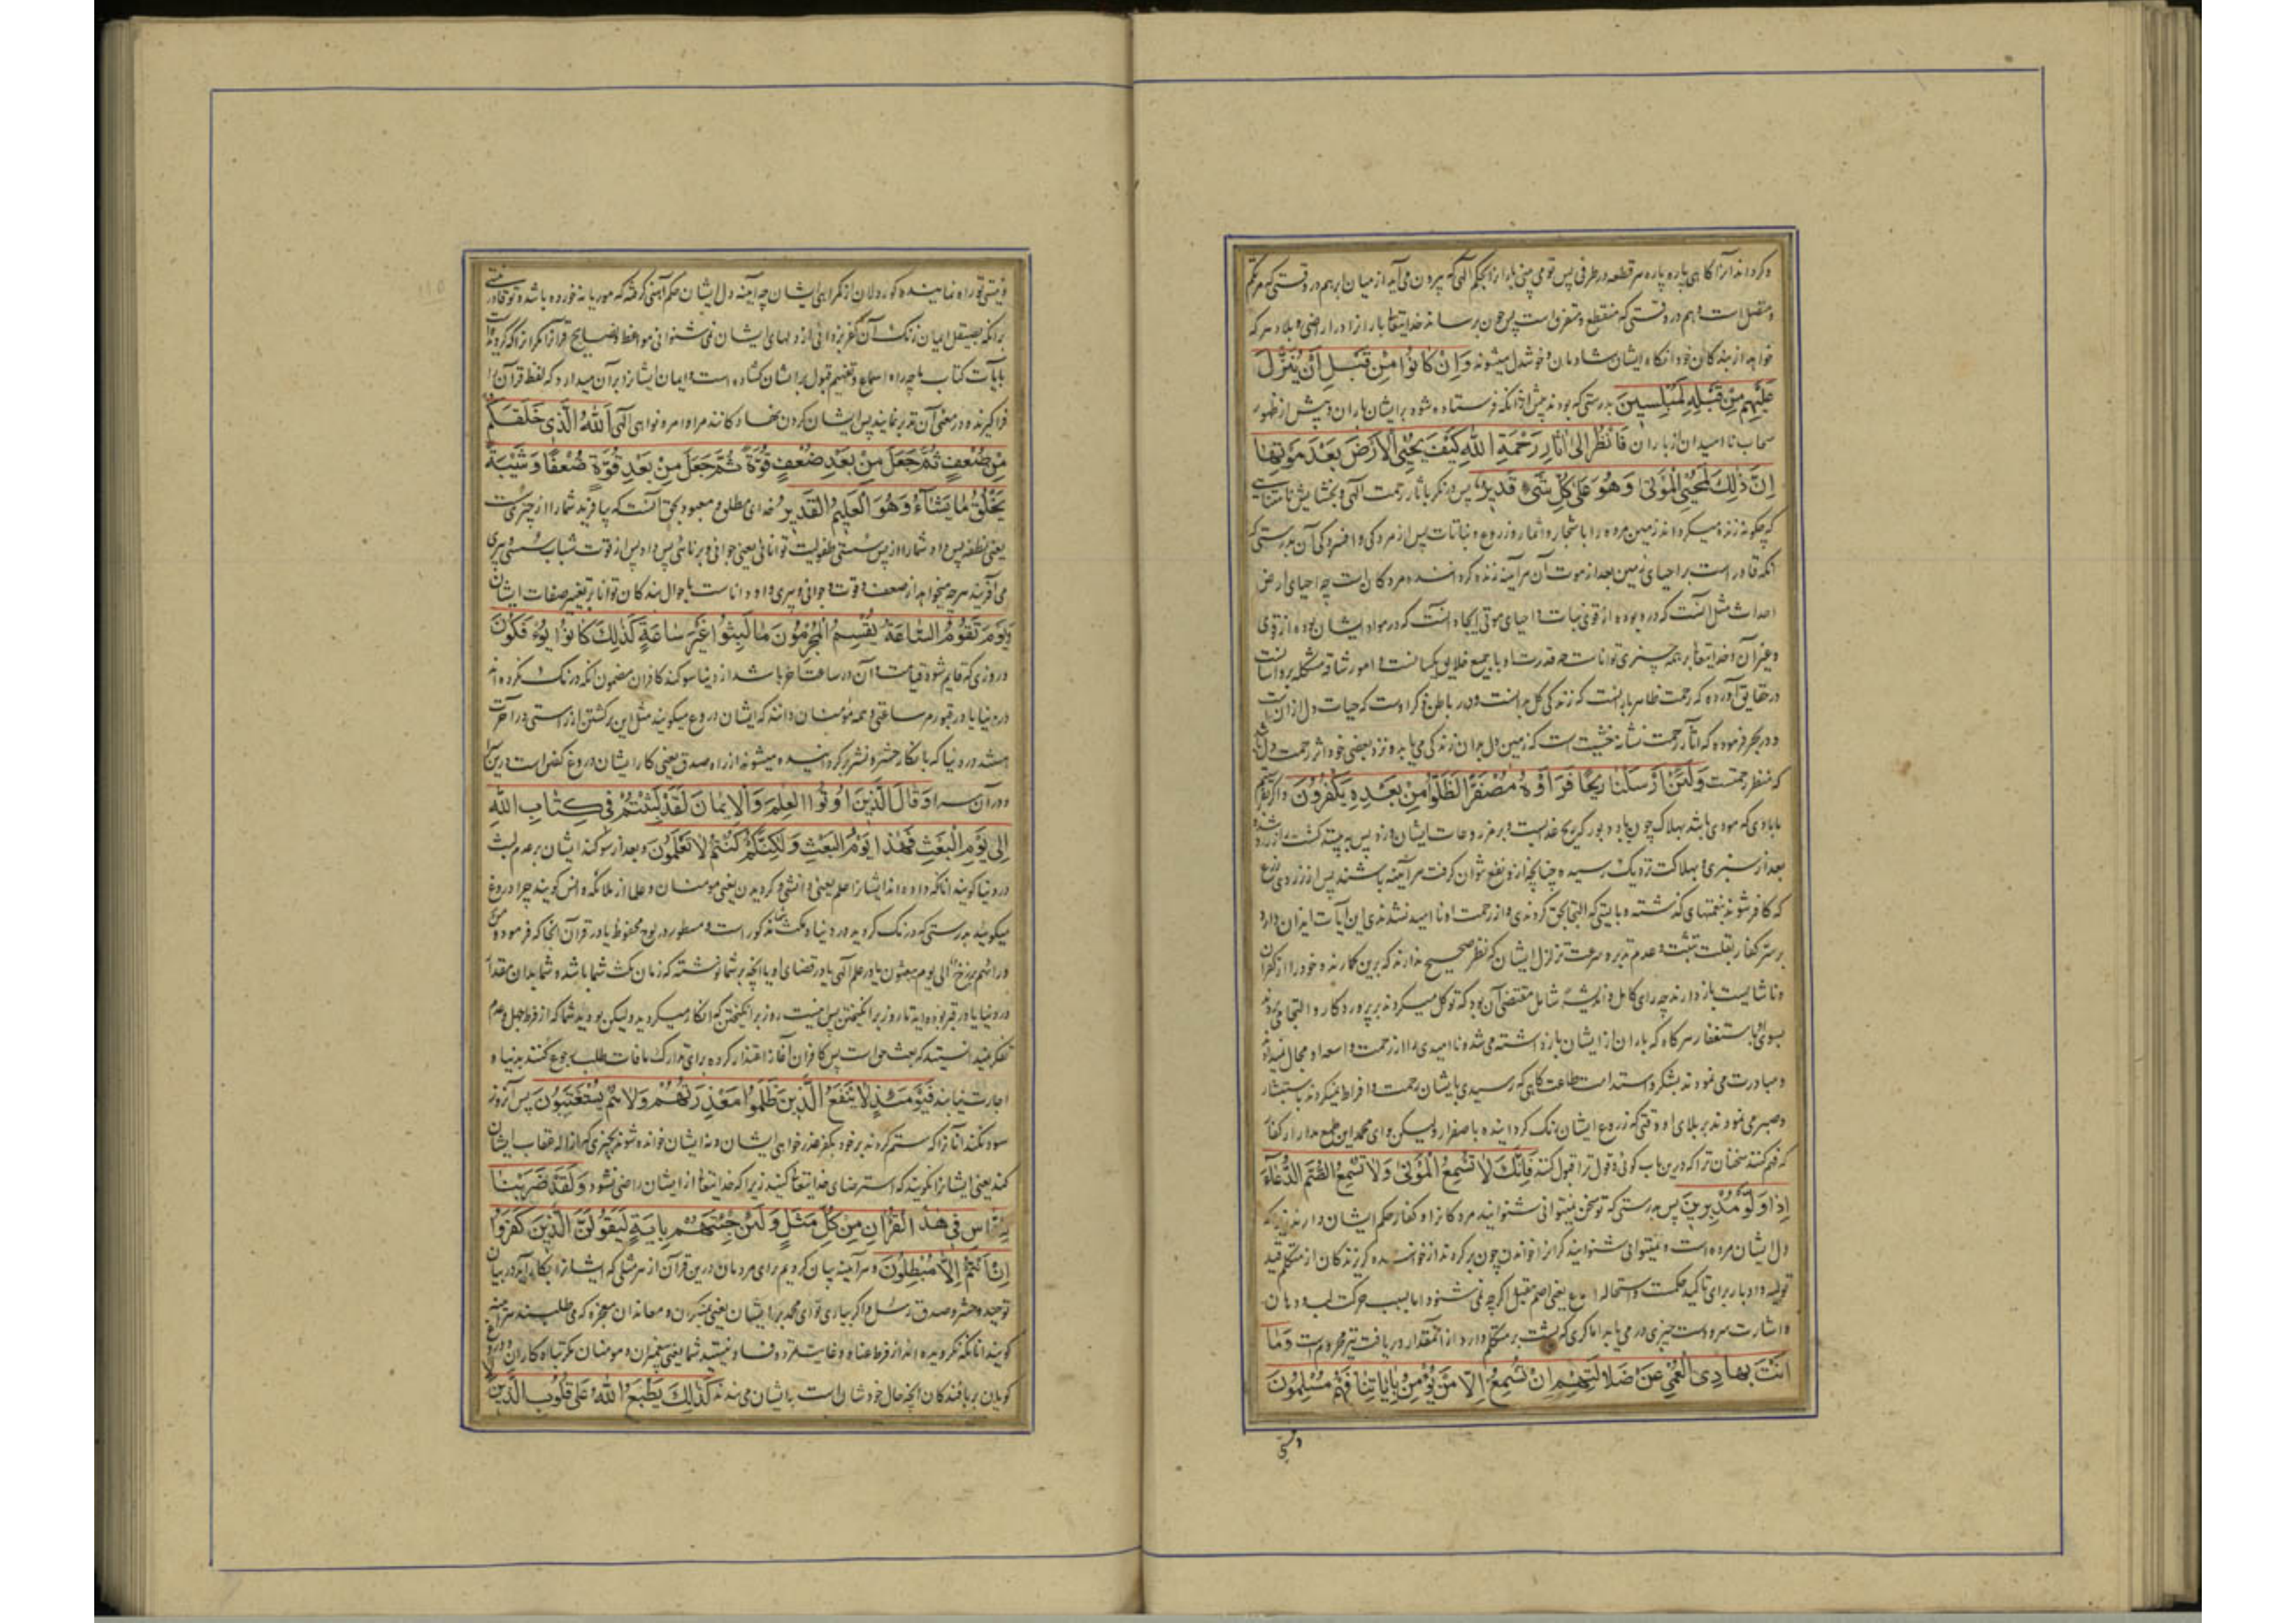 و گرداند آنرا گاهی پاره پاره هر قطعه در طرفی پس تو می بینی باران را بحکم الهی که بیرون می آید از میان ابر هم در وقتی که متراکم
و متصل است و هم در وقتی که منقطع و متفرق است پس چون برساند خدایتعالی باران را در اراضی و بلاد هر که
خواهد از بندگان خود آنگاه ایشان شادمان و خوشدل میشوند وَاِنْ كَانُوا مِنْ قَبْلِ اَنْ يُنَزَّلَ
عَلَيْهِمْ مِنْ قَبْلِهِ لَمُبْلِسِينَ بدرستی که بودند پیش از آنکه فرستاده شود بر ایشان باران و پیش از ظهور
سحاب نا امیدان از باران فَانْظُرْ اِلى اٰثَارِ رَحْمَةِ اللّٰهِ كَيْفَ يُحْيِي الْاَرْضَ بَعْدَ مَوْتِهَا
اِنَّ ذٰلِكَ لَمُحْيِي الْمَوْتىٰ وَهُوَ عَلىٰ كُلِّ شَيْءٍ قَدِيرٌ پس در نگر بآثار رحمت الهی و بخشایش نامتناهی
که چگونه زنده میگرداند زمین مرده را باشجار و اثمار و زروع و نباتات پس از مردگی و افسردگی آن بدرستی که
آنکه قادر است بر احیای زمین بعد از موت آن هر آینه زنده گرداننده مردگان است چه احیای ارض
احداث مثل آنست که در و بوده از قوی نبات و احیای موتی ایجاد آنست که در مواد ایشان بوده از قوی
و غیر آن و خدایتعالی بر همه چیزی تواناست چه قدرت او با جمیع خلایق یکسانست و امور شاقه مشکله برو آسانست
در حقایق آورده که رحمت ظاهر بارانست که زندگی گل بدانست و در باطن ذکر اوست که حیات دل ازانست
و در بحر فرموده که آثار رحمت نشانه خشیت است که زمین دل بدان زندگی می یابد و نزد بعضی خود اثر رحمت دل است
که منظر رحمتست وَلَئِنْ اَرْسَلْنَا رِيحًا فَرَاَوْهُ مُصْفَرًّا لَظَلُّوا مِنْ بَعْدِهِ يَكْفُرُونَ و اگر بفرستیم
ما بادی که مودی باشد بهلاک چون باد دبور که ریح عذابست و بر مزروعات ایشان وزد پس به بینند کشت را زرد شده
بعد از سبزی و بهلاکت نزدیک رسیده چنانچه از و نفع نتوان گرفت هر آینه باشند پس از زردی زرع
که کافر شوند بنعمتهای گذشته و بایستی که التجا بحق کردندی و از رحمت او نا امید نشدندی این آیات ایذان دارد
بر سر کفار بقلت تثبت و عدم تدبر و سرعت تزلزل ایشان که نظر صحیح ندارند که برین کمارند و خود را از کفران
و ناشایست باز دارند چه رای کامل و اندیشه شامل مقتضی آن بود که توکل میکردند بر پروردگار و التجا می بردند
بسوی او باستغفار هر گاه که باران از ایشان باز داشته می شد و نا امیدی را از رحمت واسعه او مجال نمیدادند
و مبادرت می نمودند بشکر و استدامت طاعت گاهی که رسیدی بایشان رحمت و افراط نمیکردند باستبشار
و صبر می نمودند بر بلای او وقتی که زروع ایشان رنگ گردانیده باصفرار و لیکن ای محمد این طمع مدار از کفار
که فهم کنند سخنان ترا که درین باب گوئی و قول ترا قبول کنند فَاِنَّكَ لَا تُسْمِعُ الْمَوْتىٰ وَلَا تُسْمِعُ الصُّمَّ الدُّعَاءَ
اِذَا وَلَّوْا مُدْبِرِينَ پس بدرستی که تو سخن نیتوانی شنوانید مردگانرا و کفار حکم ایشان دارند زیرا که
دل ایشان مرده است و نمیتوانی شنوانید کرانرا خواندن چون برگردند از خواننده گریزندگان از متکلم قید
تولیه و ادبار برای تاکید حکمت و استحاله اسماع یعنی اصم مقبل اگرچه نمی شنود اما بسبب حرکت لب و دهان
و اشارت سر و دست چیزی در می یابد اما کری که پشت بر متکلم دارد از آنمقدار دریافت نیز محروم است وَمَا
اَنْتَ بِهَادِي الْعُمْيِ عَنْ ضَلَالَتِهِمْ اِنْ تُسْمِعُ اِلَّا مَنْ يُؤْمِنُ بِاٰيَاتِنَا فَهُمْ مُسْلِمُونَ
ونیستی
ونیستی تو راه نماینده کوردلان از گمراهی ایشان چه آینه دل ایشان حکم آهنی گرفته که موریانه خورده باشد و تو قادر نیستی
بر آنکه بصیقل ایمان زنگ آن کفر بزدائی از دلهای ایشان نمی شنوانی مواعظ و نصایح قرآنرا مگر آنرا که گرویده است
بآیات کتاب ما چه راه اسماع و تفهیم قبول بر ایشان گشاده است و ایمان ایشانرا بر آن میدارد که لفظ قرآن را
فرا گیرند و در معنی آن تدبر نمایند پس ایشان گردن نهادگانند مر اوامر و نواهی الهی اَللّٰهُ الَّذِي خَلَقَكُمْ
مِنْ ضُعْفٍ ثُمَّ جَعَلَ مِنْ بَعْدِ ضُعْفٍ قُوَّةً ثُمَّ جَعَلَ مِنْ بَعْدِ قُوَّةٍ ضُعْفًا وَشَيْبَةً
يَخْلُقُ مَا يَشَاءُ وَهُوَ الْعَلِيمُ الْقَدِيرُ خدای مطلق و معبود بحق آنست که بیافرید شما را از چیزی سست
یعنی نطفه پس داد شما را از پس سستی طفولیت توانائی یعنی جوانی و برنائی پس داد پس از قوت شباب سستی و پیری
می آفریند هر چه میخواهد از ضعف و قوت و جوانی و پیری و او داناست باحوال بندگان توانا بر تغییر صفات ایشان
وَيَوْمَ تَقُومُ السَّاعَةُ يُقْسِمُ الْمُجْرِمُونَ مَا لَبِثُوا غَيْرَ سَاعَةٍ كَذٰلِكَ كَانُوا يُؤْفَكُونَ
در روزی که قایم شود قیامت و آن در ساعت آخر باشد از دنیا سوگند کافران مضمون آنکه درنگ نکرده اند
در دنیا یا در قبور مر ساعتی و همه مؤمنان دانند که ایشان دروغ میگویند مثل این برگشتن از راستی در آخرت
هستند در دنیا که بانکار حشر و نشر گردانیده میشوند از راه صدق یعنی کار ایشان دروغ گفتن است درین سرا
و در آن سرا وَقَالَ الَّذِينَ اُوتُوا الْعِلْمَ وَالْاِيمَانَ لَقَدْ لَبِثْتُمْ فِي كِتَابِ اللّٰهِ
اِلىٰ يَوْمِ الْبَعْثِ فَهٰذَا يَوْمُ الْبَعْثِ وَلٰكِنَّكُمْ كُنْتُمْ لَا تَعْلَمُونَ و بعد از سوگند ایشان بر عدم لبث
در دنیا گویند آنانکه داده اند ایشانرا علم یعنی دانش و گرویدن یعنی مومنان و علما از ملائکه و انس گویند چرا دروغ
میگوئید بدرستی که درنگ کردید در دنیا و مکث شما مذکور است و مسطور در لوح محفوظ یا در قرآن آنجا که فرمود و من
ورائهم برزخ الی یوم یبعثون یا در علم الهی یا در قضای او یا آنچه بر شما نوشته که زمان مکث شما باشد و شما بدان مقدار
در دنیا یا در قبر بوده اید تا روز برانگیختن پس اینست روز برانگیختن که انکار میکردید و لیکن بودید شما که از فرط جهل و عدم
تفکر نمی دانستید که بعث حق است پس کافران آغاز اعتذار کرده برای تدارک مافات طلب رجوع کنند بدنیا و
اجازت نیابند فَيَوْمَئِذٍ لَا يَنْفَعُ الَّذِينَ ظَلَمُوا مَعْذِرَتُهُمْ وَلَا هُمْ يُسْتَعْتَبُونَ پس آنروز
سود نکند آنانرا که ستم کردند بر خود بکفر عذر خواهی ایشان و نه ایشان خوانده شوند بچیزی که ازاله عقاب ایشان
کند یعنی ایشانرا نگویند که استرضای خدایتعالی کنید زیرا که خدایتعالی از ایشان راضی نشود وَلَقَدْ ضَرَبْنَا
لِلنَّاسِ فِي هٰذَا الْقُرْاٰنِ مِنْ كُلِّ مَثَلٍ وَلَئِنْ جِئْتَهُمْ بِاٰيَةٍ لَيَقُولَنَّ الَّذِينَ كَفَرُوا
اِنْ اَنْتُمْ اِلَّا مُبْطِلُونَ و هر آینه بیان کردیم برای مردمان درین قرآن از هر مثلی که ایشانرا بکار آید در بیان
توحید و حشر و صدق رسل و اگر بیاری تو ای محمد بر ایشان یعنی منکران و معاندان معجزه که می طلبند هر آینه
گویند آنانکه نگرویده اند از فرط عناد و غایت تمرد و فساد نیستید شما یعنی پیغمبران و مومنان مگر تباه کاران و دروغ
گویان بر بافندگان آنچه حال خود شان است بایشان می بندند كَذٰلِكَ يَطْبَعُ اللّٰهُ عَلىٰ قُلُوبِ الَّذِينَ